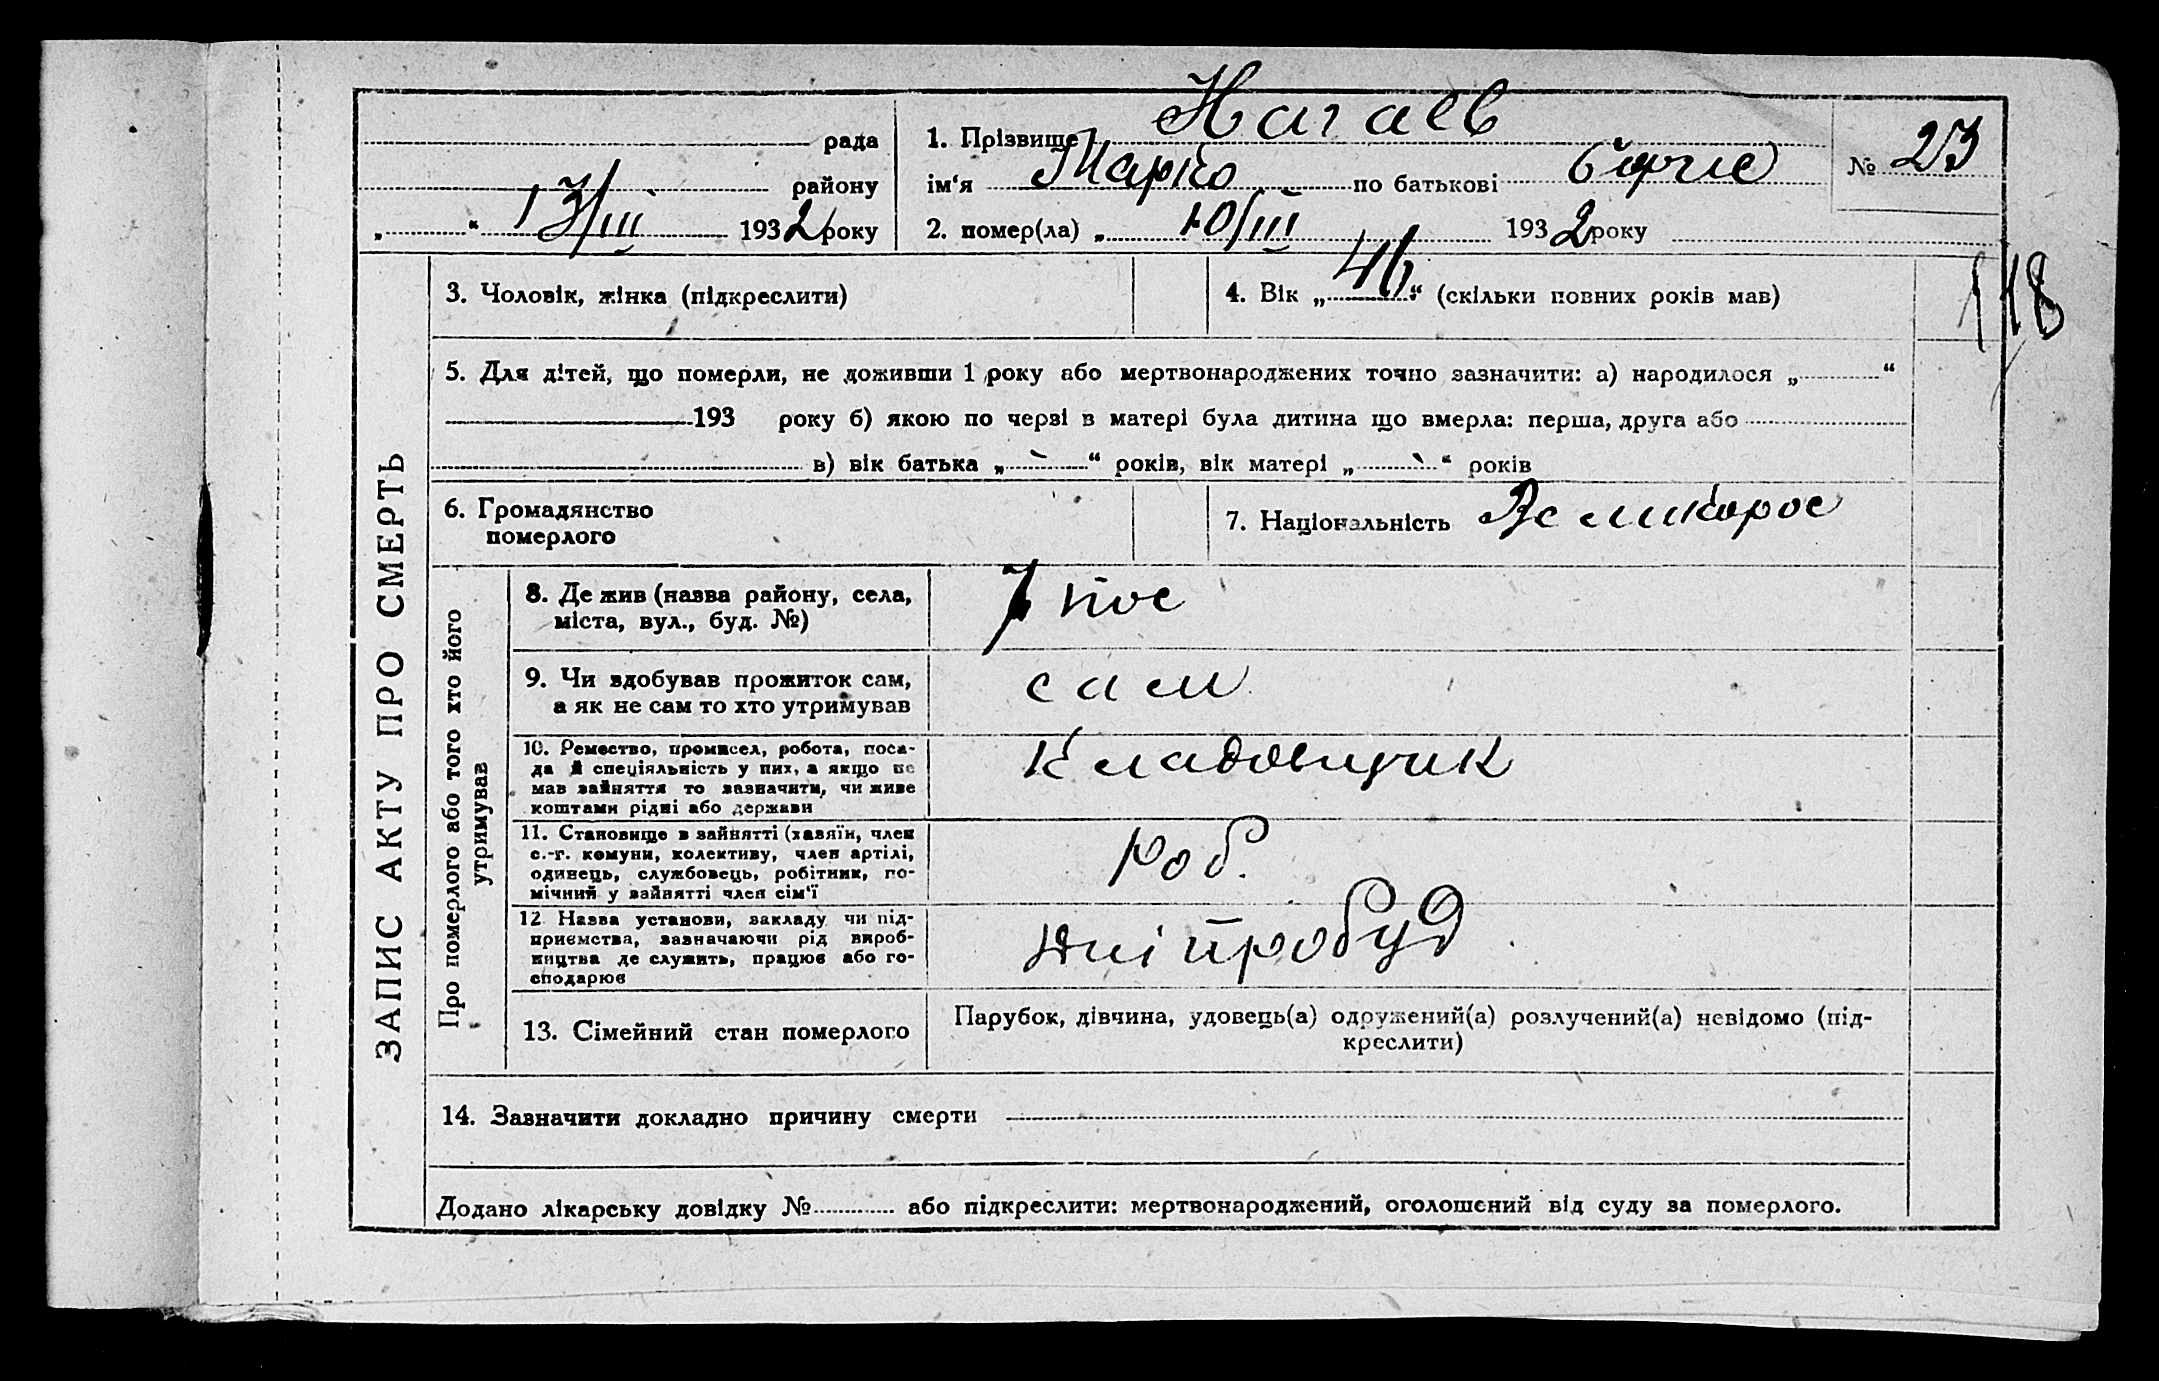 рада
району
„ “ 13/III 1932 року
1. Прізвище Нагаєв
ім‘я Марко по батькові
2. помер(ла) „ 10/III 1932 року
№ 23
118
ЗАПИС АКТУ ПРО СМЕРТЬ
3. Чоловік, жінка (підкреслити)
4. Вік „ 46 “ (скільки повних років мав)
5. Для дітей, що померли, не доживши 1 року або мертвонароджених точно зазначити: а) народилося „ “
193 року б) якою по черзі в матері була дитина що вмерла: перша, друга або
в) вік батька „ - “ років, вік матері „ “ років
6. Громадянство
померлого
7. Національність Великорос
Про померлого або того хто його
утримував
8. Де жив (назва району, села,
міста, вул., буд. №)
7 пос
9. Чи здобував прожиток сам,
а як не сам то хто утримував
сам
10. Ремество, промисел, робота, поса-
да й спеціяльність у них, а якщо не
мав зайняття то зазначити, чи живе
коштами рідні або держави
Кладовщик
11. Становище в зайнятті (хазяїн, член
с.-г. комуни, колективу, член артілі,
одинець, службовець, робітник, по-
мічний у зайнятті член сім‘ї
роб.
12 Назва установи, закладу чи під-
приємства, зазначаючи рід вироб-
ництва де служить, працює або го-
сподарює
Дніпробуд
13. Сімейний стан померлого
Парубок, дівчина, удовець(а) одружений(а) розлучений(а) невідомо (під-
креслити)
14. Зазначити докладно причину смерти
Додано лікарську довідку № або підкреслити: мертвонароджений, оголошений від суду за померлого.